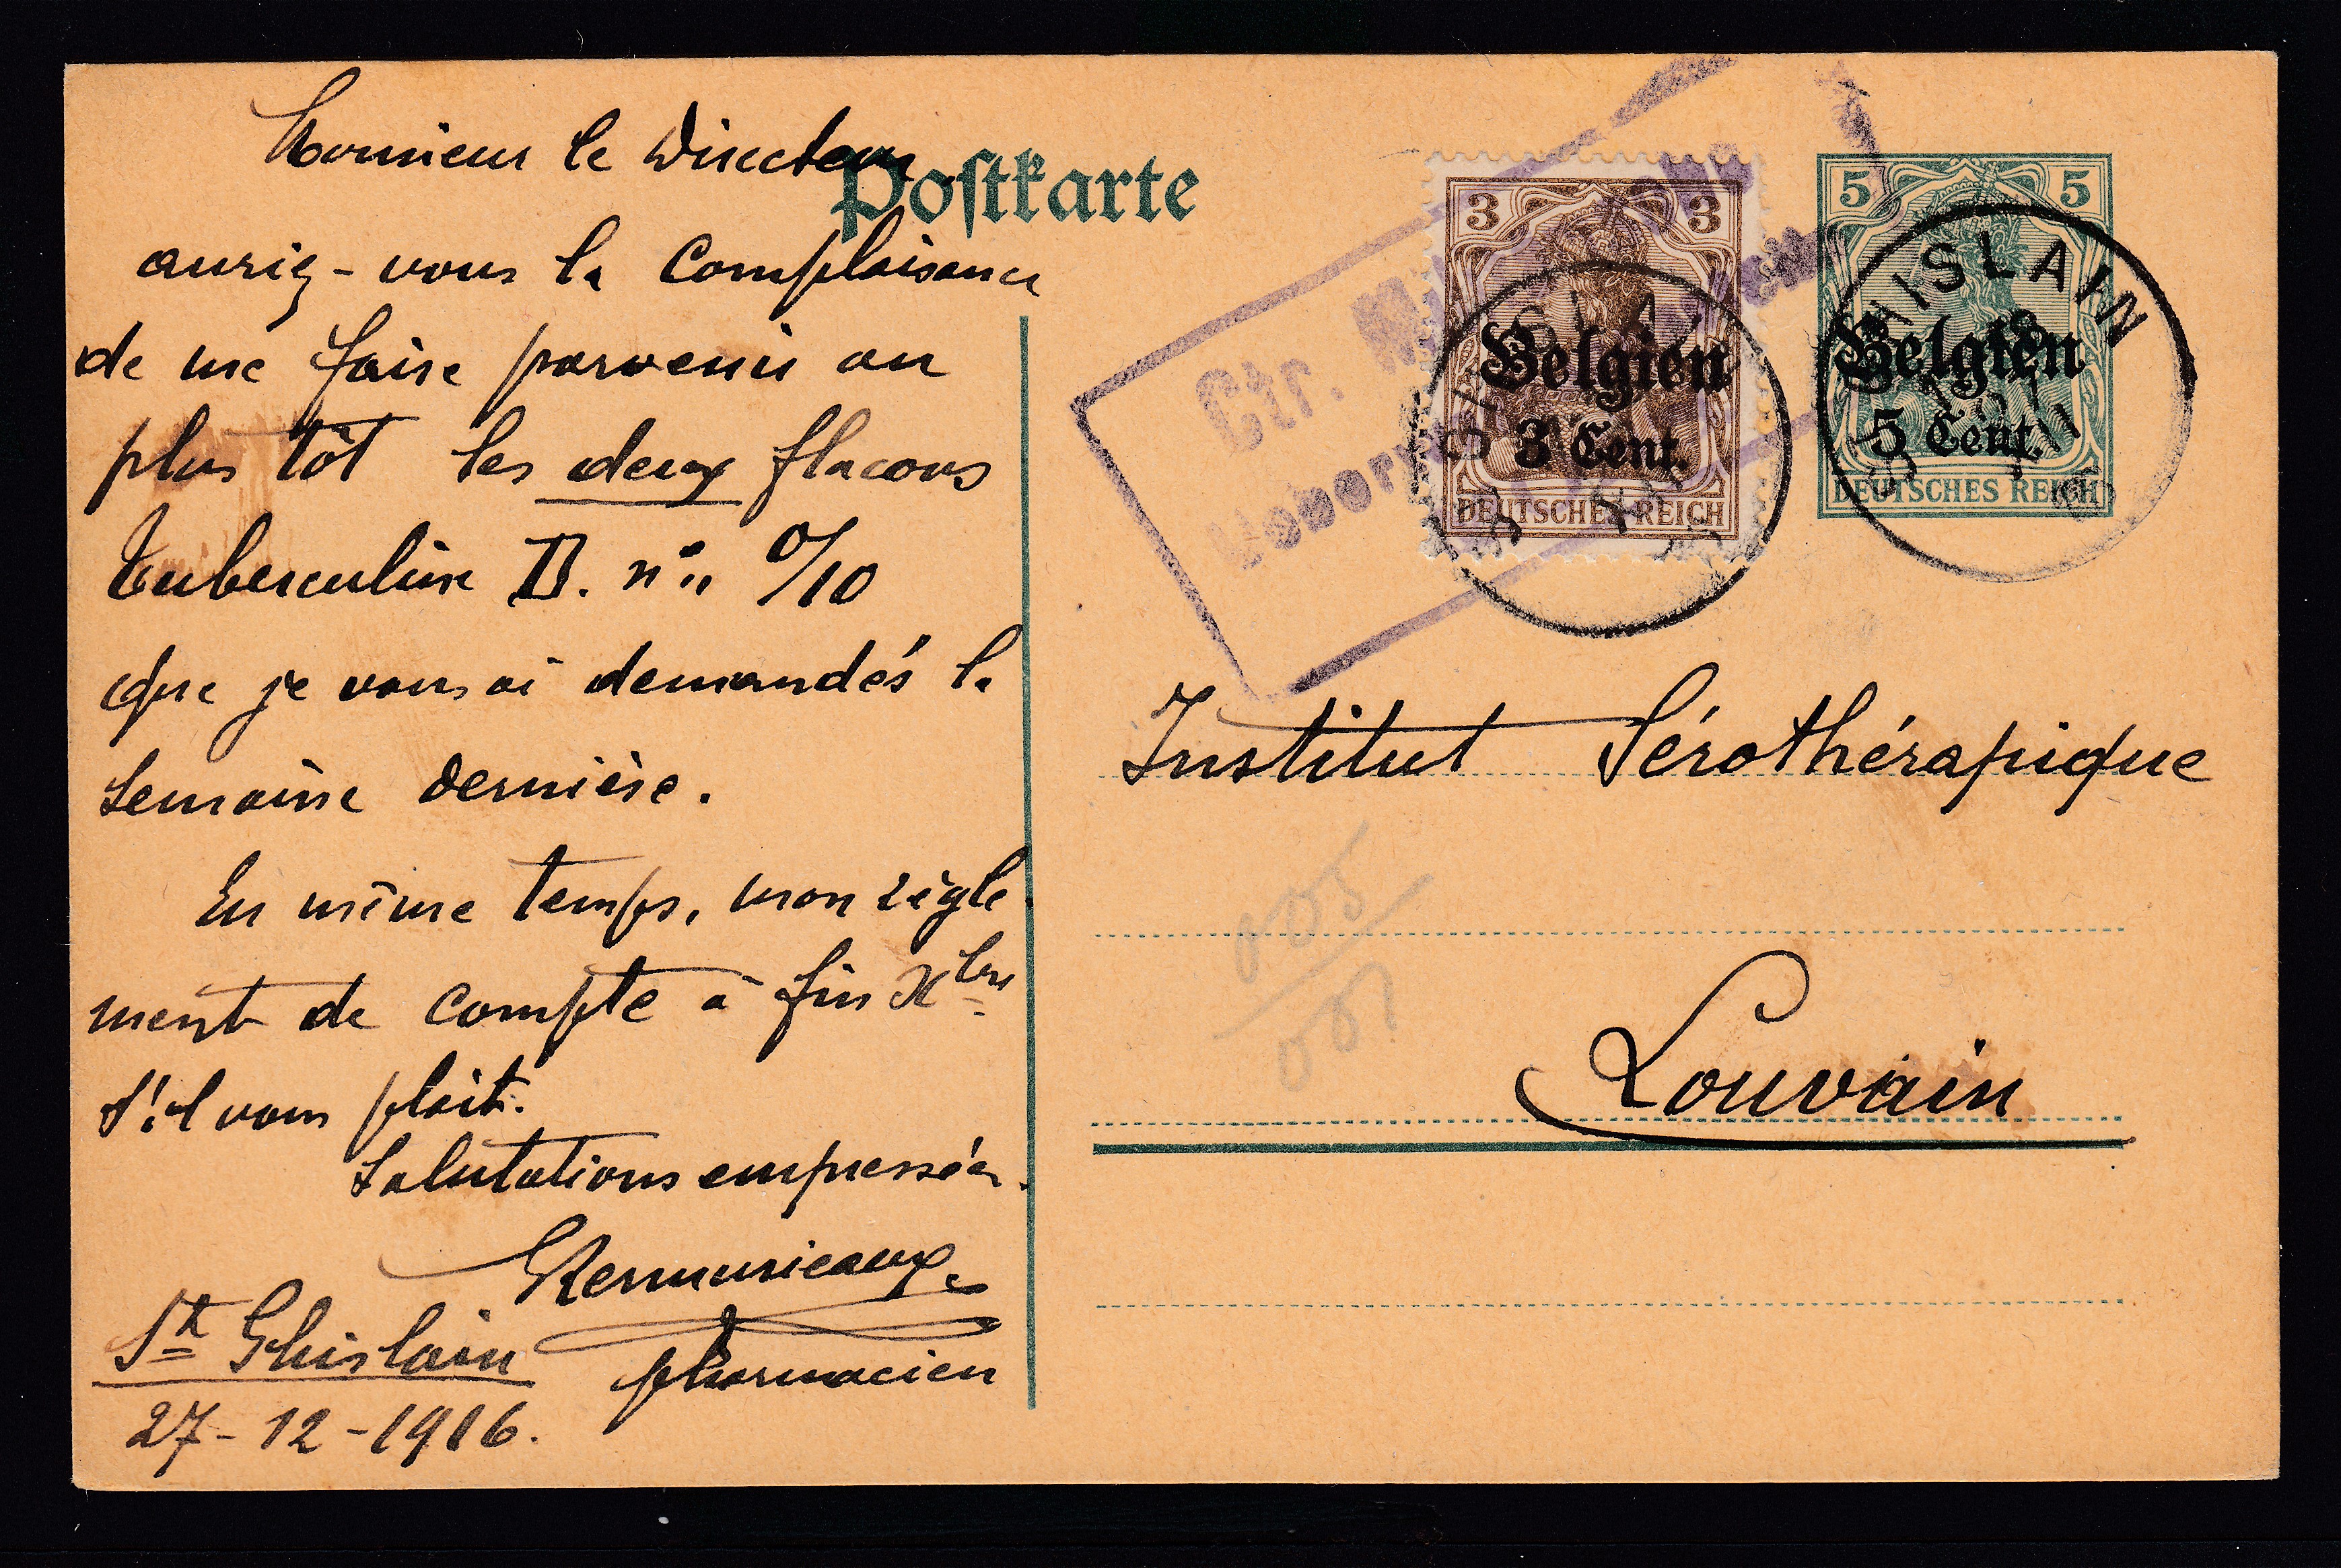 Monsieur le Directeur
Postkarte
auriez-vous la Complaisance
de me faire parvenir au
plus tôt les deux flacons
Tuberculine
que je vous ai demandés la
semaine dernière.
En même temps, mon règle
ment de compte à fin Xbre
s'il vous plait.
Salutations empressées.
pharmacien
St Ghislain
27-12-1916.
3 3
Belgien
3 Cent.
DEUTSCHES REICH
5 5
Belgien
5 Cent.
DEUTSCHES REICH
GHISLAIN
Ctr.
Institut Sérothérapique
Louvain